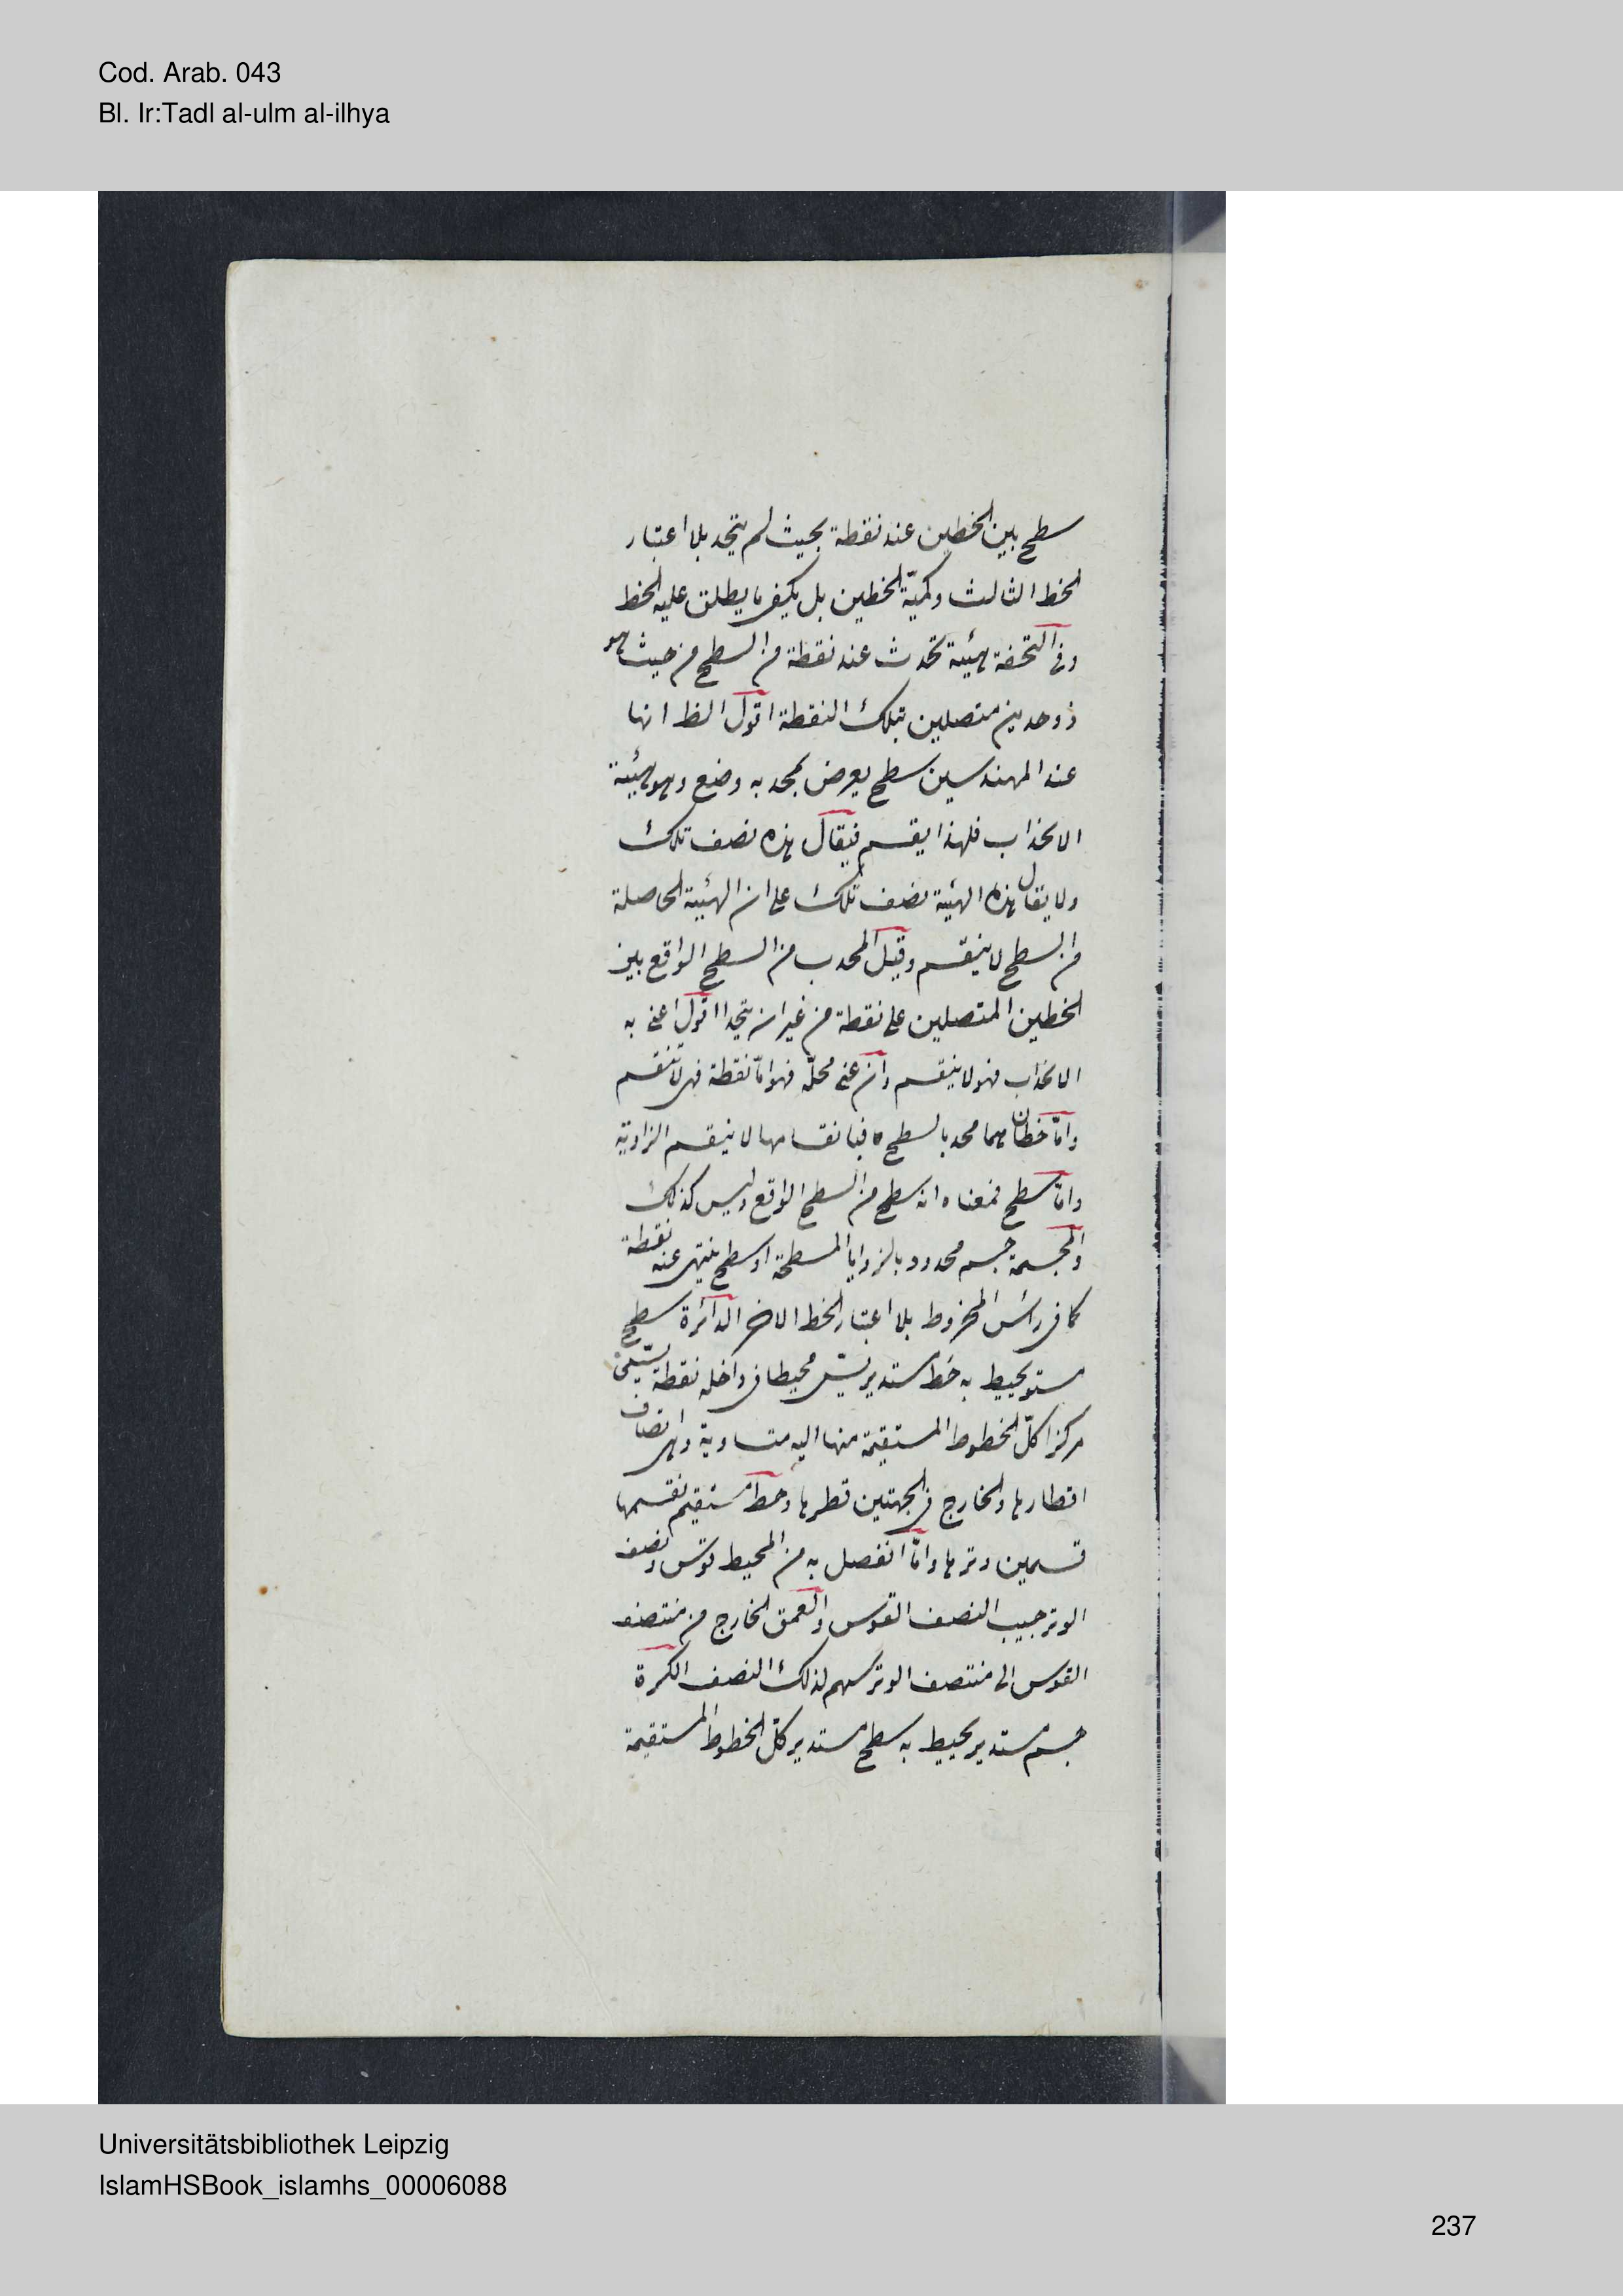 Cod. Arab. 043
Bl. Ir:Tadl al-ulm al-ilhya
سطح بين الخطين عند نقطة بحيث لم يتحد بلا اعتبار
الخط الثالث وكميّة الخطين بل يكفى ما يطلق عليه الخط
وفى التحفة هيئة تحدث عند نقطة من السطح من حيث هو
ذو حدين متصلين بتلك النقطة اقول الظ انها
عند المهندسين سطح يعرض لمحدبه وضع وهو هيئة
الانحداب فلهذا يقسم فيقال هذه نصف تلك
ولا يقال هذه الهيئة نصف تلك على ان الهيئة الحاصلة
من السطح لا ينقسم وقيل المحدب من السطح الواقع بين
الخطين المتصلين على نقطة من غير ان يتحدا اقول اعنى به
الانحداب فهو لا ينقسم وان عنى محلّه فهو امّا نقطة فهى لا تنقسم
وامّا خطان هما محدبا لسطح فبانقسامها لا ينقسم الزاوية
وامّا سطح فمعناه انه سطح من السطح الواقع وليس كذلك
والمجسمة جسم محدود بالزوايا المسطحة او سطح ينتهى عند نقطة
كما فى رأس المخروط بلا اعتبار الخط الاخر الدائرة سطح
مستو يحيط به خط مستدير يسمّى محيطا فى داخله نقطة يسمّى
مركزا كلّ الخطوط المستقيمة منها اليه متساوية وهى انصاف
اقطارها والخارج فى الجهتين قطرها وخط مستقيم يقسمها
قسمين وترها وامّا انفصل به من المحيط قوس ونصف
الوتر جيب النصف القوس والعمق الخارج من منتصف
القوس الى منتصف الوتر سهم لذلك النصف الكرة
جسم مستدير يحيط به سطح مستدير كلّ الخطوط المستقيمة
Universitätsbibliothek Leipzig
IslamHSBook_islamhs_00006088
237